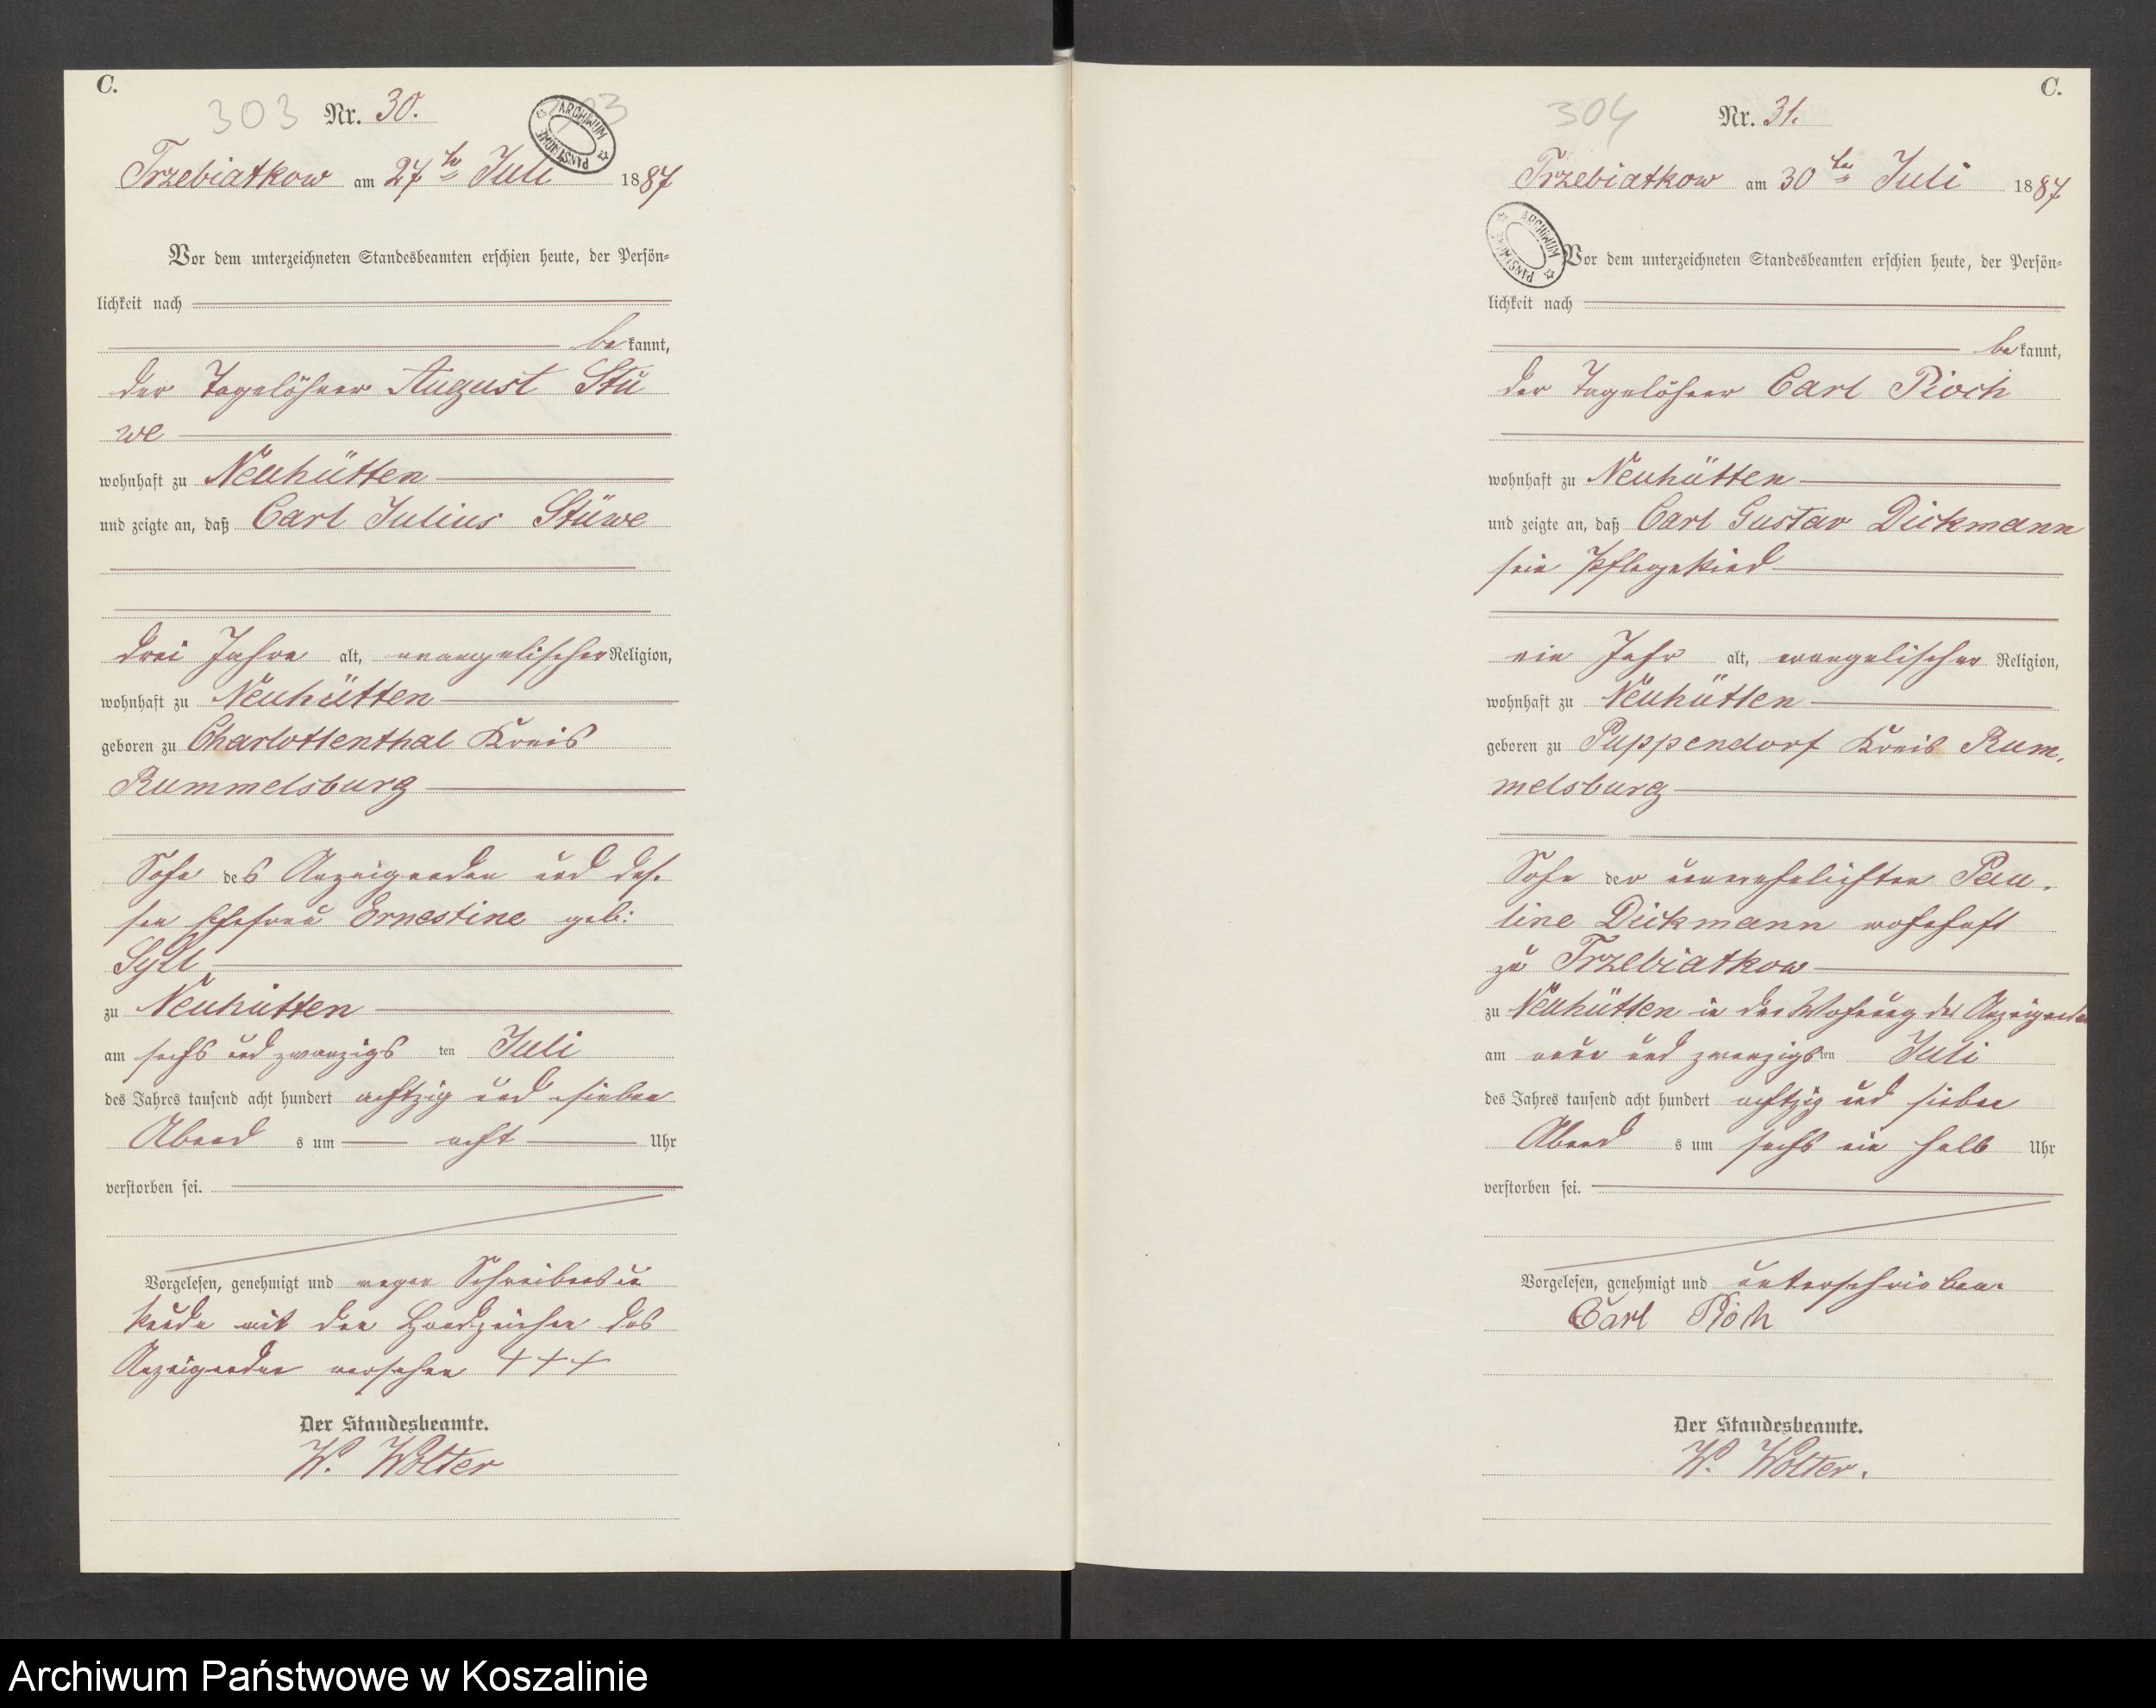 C.
303 Nr. 30.
ARCHIWUM PAŃSTWOWE
Trzebiatkow am 27ten Juli 1887
Vor dem unterzeichneten Standesbeamten erschien heute, der Persön=
lichkeit nach
bekannt,
der Tagelöhner August Stü
we
wohnhaft zu Neuhütten
und zeigte an, daß Carl Julius Stüwe
drei Jahre alt, evangelischer Religion,
wohnhaft zu Neuhütten
geboren zu Charlottenthal Kreis
Rummelsburg
Sohn des Anzeigenden und des=
sen Ehefrau Ernestine geb:
Syll
zu Neuhütten
am sechs und zwanzigs ten Juli
des Jahres tausend acht hundert achtzig und sieben
Abend s um acht Uhr
verstorben sei.
Vorgelesen, genehmigt und wegen Schreibensun
kunde mit den Handzeichen des
Anzeigenden versehen +++
Der Standesbeamte.
W. Wolter
C.
304 Nr. 31.
ARCHIWUM PAŃSTWOWE
Trzebiatkow am 30ten Juli 1887
Vor dem unterzeichneten Standesbeamten erschien heute, der Persön=
lichkeit nach
bekannt,
der Tagelöhner Carl Pioch
wohnhaft zu Neuhütten
und zeigte an, daß Carl Gustav Dickmann
sein Pflegekind
ein Jahr alt, evangelischer Religion,
wohnhaft zu Neuhütten
geboren zu Puppendorf Kreis Rum,
melsburg
Sohn der unverehelichten Pau,
line Dickmann wohnhaft
zu Trzebiatkow
zu Neuhütten in der Wohnung des Anzeigenden
am neun und zwanzigsten Juli
des Jahres tausend acht hundert achtzig und sieben
Abend s um sechs ein halb Uhr
verstorben sei.
Vorgelesen, genehmigt und unterschrieben.
Carl Pioch
Der Standesbeamte.
W. Wolter.
Archiwum Państwowe w Koszalinie